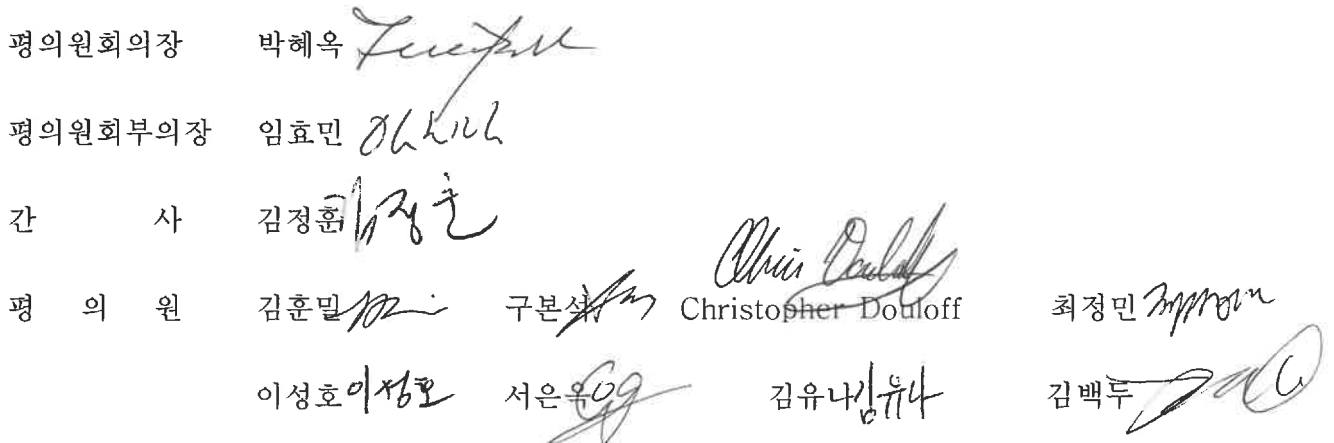 평의원회의장 박혜옥
평의원회부의장 임효민 임효민
간 사 김정훈 김정훈
평 의 원 김훈밀 구본석 Christopher Douloff 최정민
이성호 이성호 서은옥 김유나 김유나 김백두